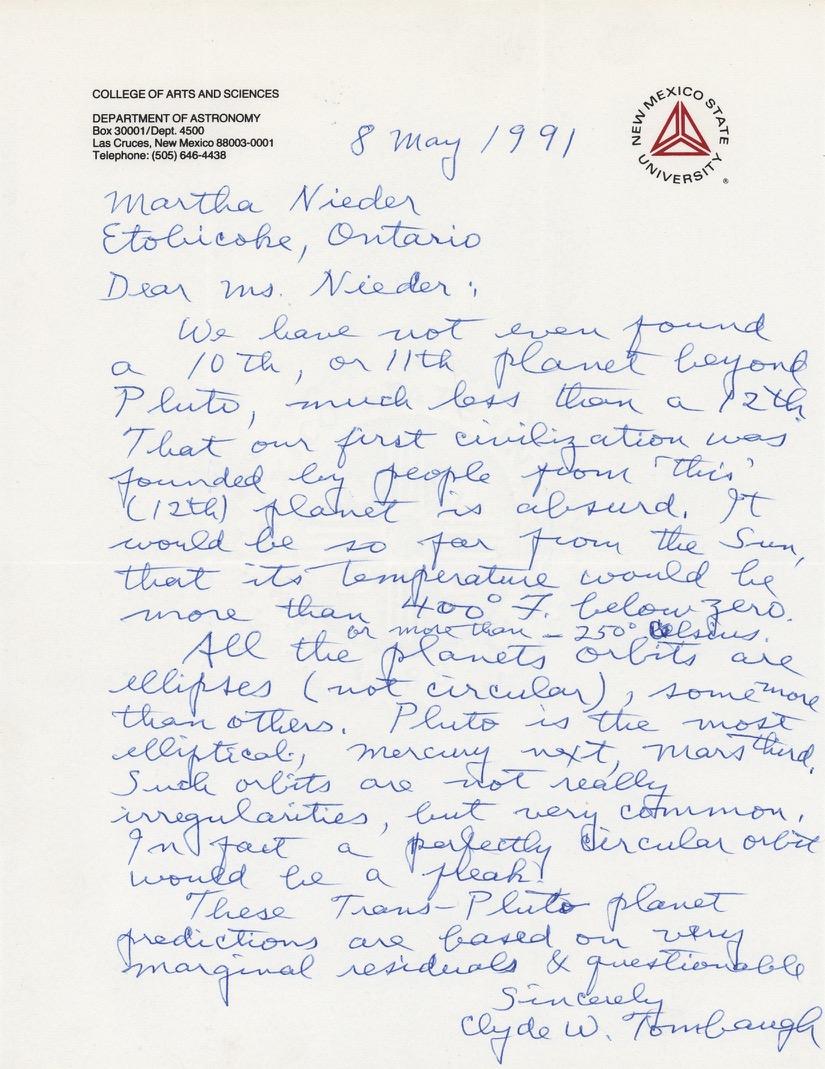 COLLEGE OF ARTS AND SCIENCES
DEPARTMENT OF ASTRONOMY
Box 30001/Dept. 4500
Las Cruces, New Mexico 88003-0001
Telephone: (505) 646-4438
NEW MEXICO STATE
UNIVERSITY
®
8 May 1991
Martha Nieder
Etobicoke, Ontario
Dear Ms. Nieder:
We have not even found
a 10th, or 11th planet beyond
Pluto, much less than a 12th.
That our first civilization was
founded by people from "this"
(12th) planet is absurd. It
would be so far from the Sun,
that its temperature would be
more than 400° F. below zero.
or more than - 250° Celsius.
All the planets orbits are
ellipses (not circular), some more
than others. Pluto is the most
elliptical, mercury next, mars third.
Such orbits are not really
irregularities, but very common.
In fact a perfectly circular orbit
would be a freak!
These Trans-Pluto planet
predictions are based on very
marginal residuals & questionable
Sincerely
Clyde W. Tombaugh